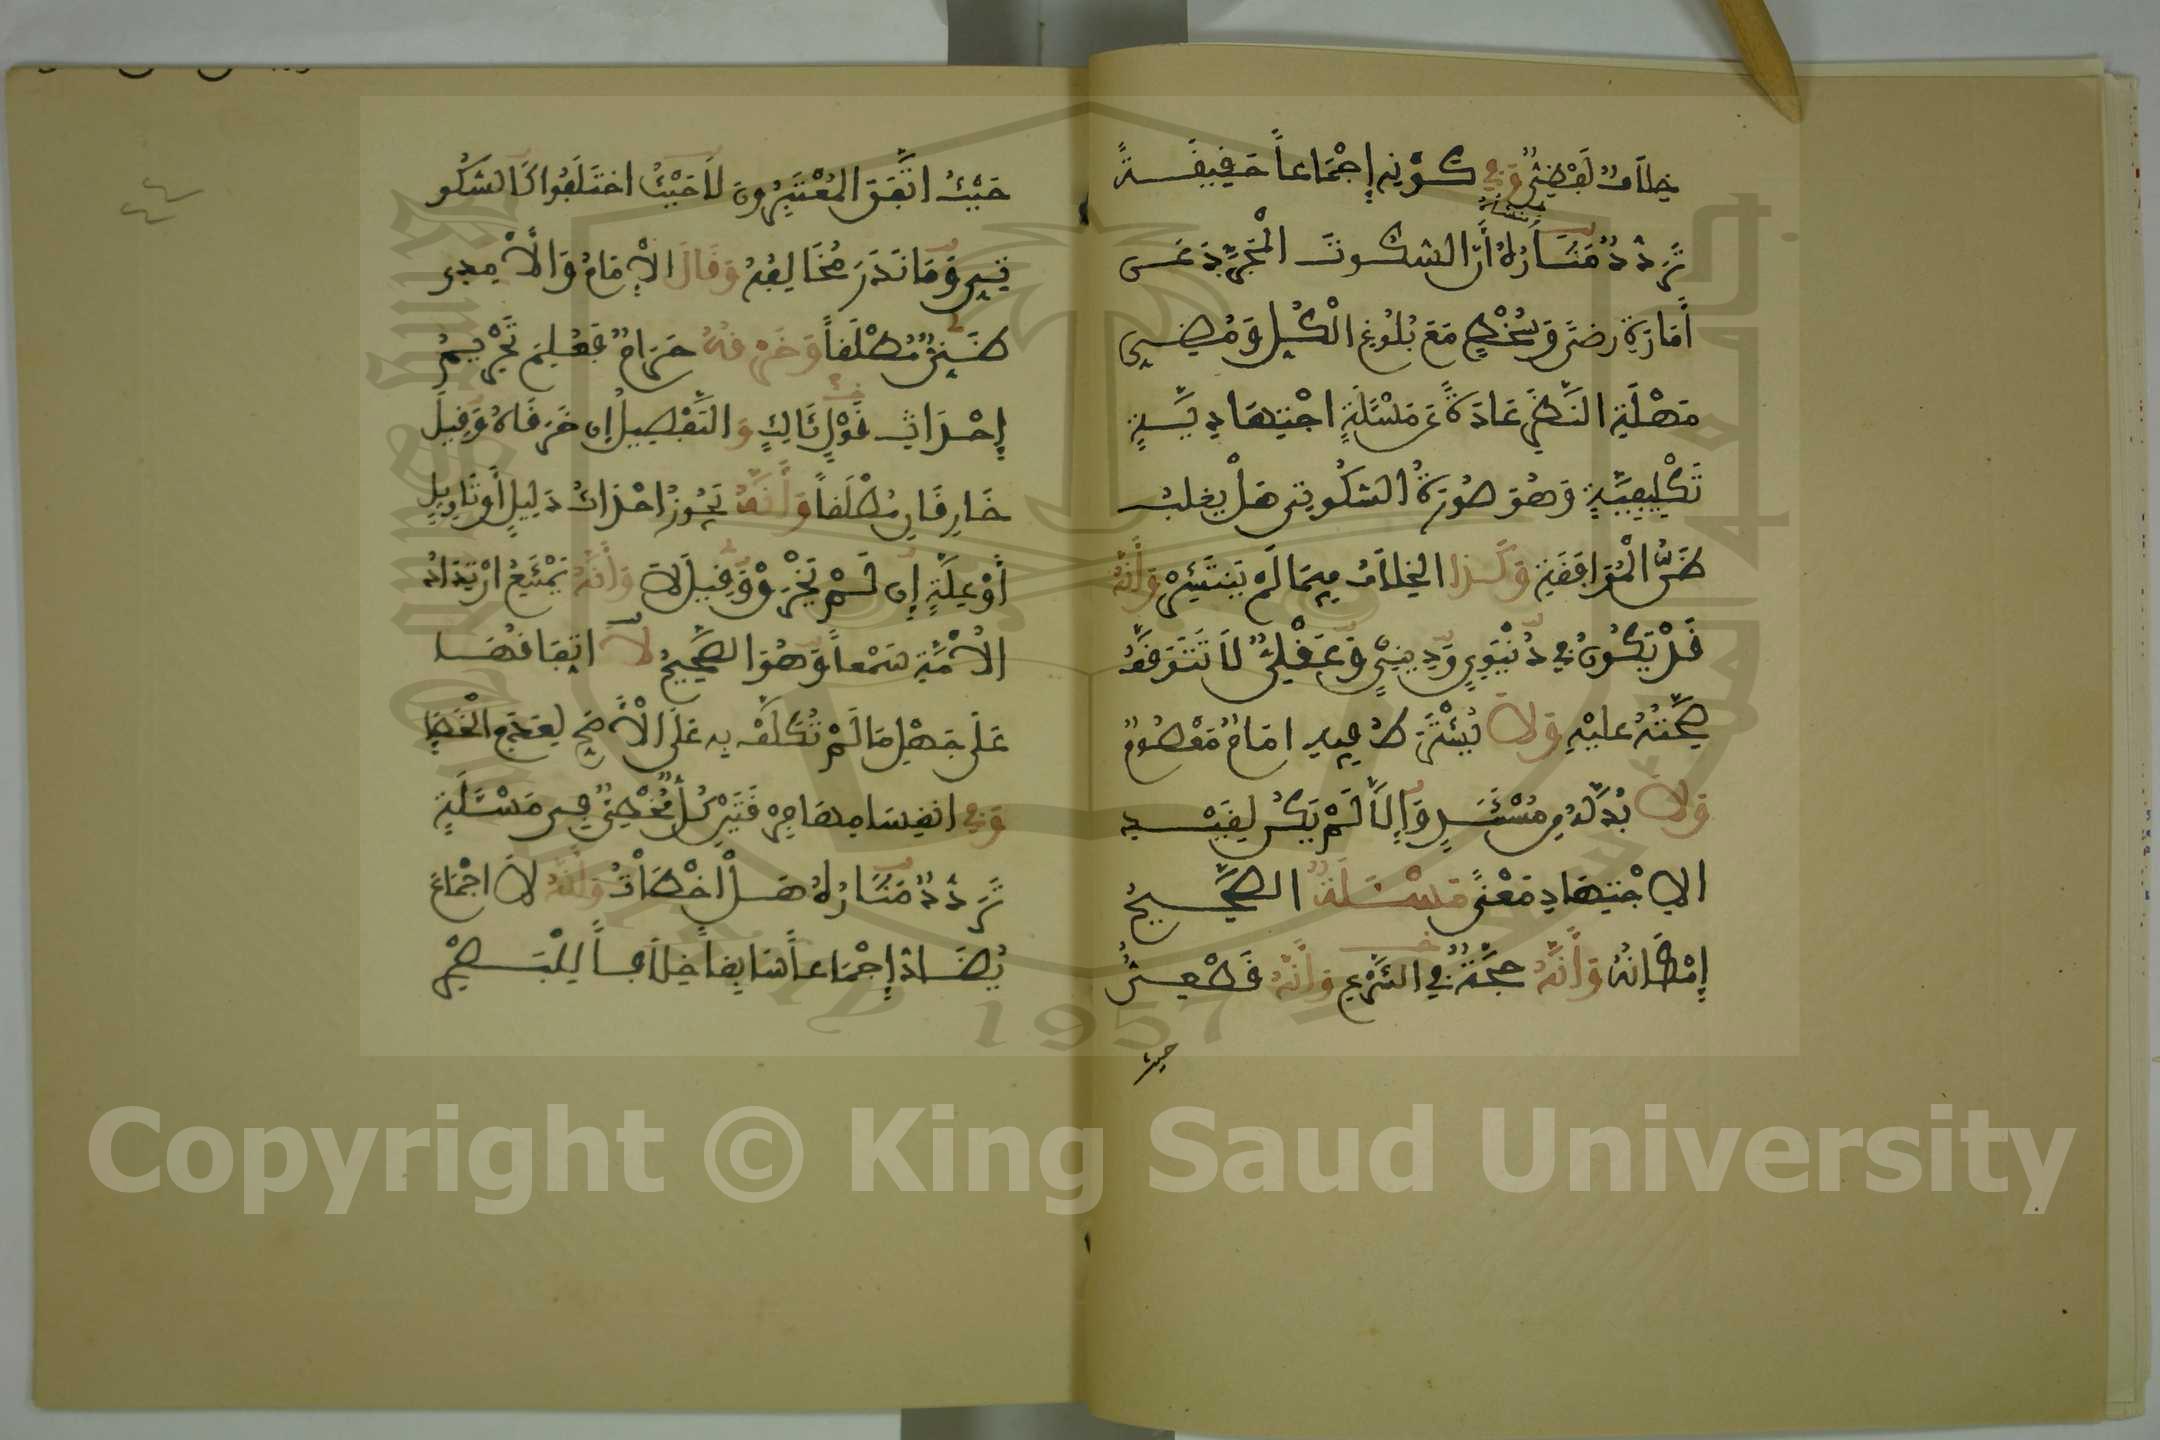 خِلَافٌ لَفْظِيٌّ وَفِي كَوْنِهِ إِجْمَاعاً حَقِيقَةً
تَرَدُّدٌ مَثَارُهُ أَنَّ السُّكُوتَ الْمُجَرَّدَ عَنْ
أَمَارَةِ رِضىً وَسُخْطٍ مَعَ بُلُوغِ الْكُلِّ وَمُضِيِّ
مُهْلَةِ النَّظَرِ عَادَةً عَنْ مَسْئَلَةٍ اجْتِهَادِيَّةٍ
تَكْلِيفِيَّةٍ وَهُوَ صُورَةُ السُّكُوتِي هَلْ يغلب
ظَنُّ الْمُوَافَقَةِ وَكَذَا الْخِلَافُ فِيمَا لَمْ يَنْتَشِرْ وَأَنَّهُ
قَدْ يَكُونُ فِي دُنْيَوِيٍّ وَدِينِيٍّ وَعَقْلِيٍّ لَا تَتَوَقَّفُ
صِحَّتُهُ عليْهِ وَلَا يُشْتَرَطُ فِيهِ امَامٌ مَعْصُومٌ
وَلَا بُدَّ لَهُ مِنْ مُسْتَنَدٍ وَإِلَّا لَمْ يَكُنْ لِقَيْدِ
الاِجْتِهَادِ مَعْنًى مَسْئَلَةٌ الصَّحِيحُ
إِمْكَانُهُ وَأَنَّهُ حُجَّةٌ فِي الشَّرْعِ وَأَنَّهُ قَطْعِيٌّ
حيث
حَيْثُ اتَّفَقَ الْمُعْتَبِرُونَ لَا حَيْثُ اخْتَلَفُوا كَالسُّكُو
تِيِّ وَمَا نَدَرَ مُخَالِفُهُ وَقَالَ الْإِمَامُ وَالْآمِدِي
ظَنِّيٌّ مُطْلَقاً وَخَرْقُهُ حَرَامٌ فَعُلِمَ تَحْرِيمُ
إِحْدَاثِ قَوْلٍ ثَالِثٍ وَالتَّفْصِيلُ إِن خَرَقَاهُ وَقِيلَ
خَارِقَانِ مُطْلَقاً وَأَنَّهُ يَجُوزُ احْدَاثُ دَلِيلٍ أَو تَاوِيلٍ
أَوْ عِلَّةٍ إِن لَمْ يَخْرِقْ وَقِيلَ لَا وَأَنَّهُ يَمْتَنِعُ ارْتِدَادُ
الْأُمَّةِ سَمْعاً وَهُوَ الصَّحِيحُ لَا اتِّفَاقُهَا
عَلَى جَهْلِ مَا لَمْ تُكَلَّفْ بِهِ عَلَى الْأَصَحِّ لِعَدَمِ الْخَطَإِ
وَفِي انقِسَامِهَا فِرْقَتَيْنِ كُلٌّ مُخْطِئٌ فِي مَسْئَلَةٍ
تَرَدُّدٌ مَثَارُهُ هَلْ أَخْطَأَتْ وَأَنَّهُ لَا اجْمَاعَ
يُضَادُّ إِجْمَاعاً سَابِقاً خِلَافاً لِلْبَصْرِي